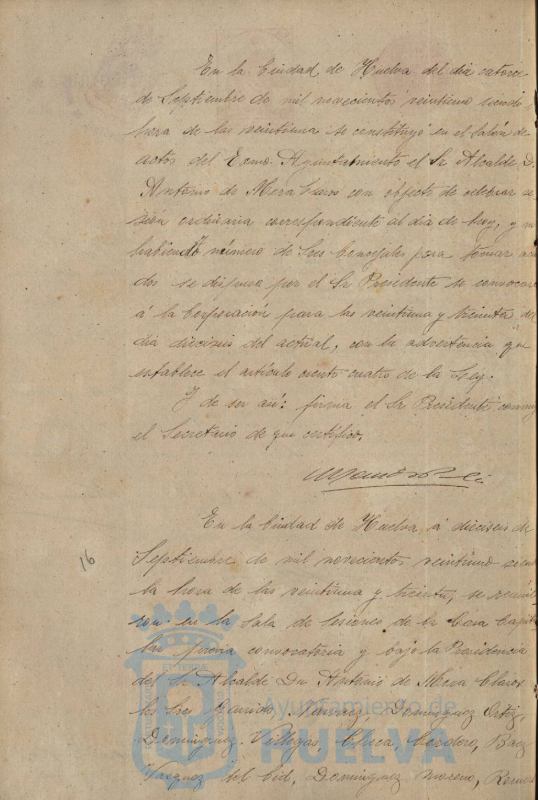 En la Ciudad de Huelva del dia catorce
de Septiembre de mil novecientos veintiuno siendo
hora de las veintiuna se constituyó en el Salón de
actos del Excmo. Ayuntamiento el Sr. Alcalde D.
Antonio de Mora Claros con objeto de celebrar se
sión ordinaria correspondiente al dia de hoy, y no
habiendo número de Sres Concejales para tomar acuer
dos se dispuso por el Sr Presidente se convocara
á la Corporación para las veintiuna y treinta del
dia dieciseis del actual, con la advertencia que
establece el artículo ciento cuatro de la Ley.
Y de ser así: firma el Sr Presidente conmigo
el Secretario de que certifico.
En la Ciudad de Huelva á dieciseis de
16
Septiembre de mil novecientos veintiuno siendo
la hora de las veintiuna y treinta, se reunie
ron en la Sala de Sesiones de la Casa Capitu
lar previa convocatoria y bajo la Presidencia
del Sr Alcalde Dn Antonio de Mora Claros
los Sres Garrido, Narvaez, Dominguez Ortiz,
Dominguez Villegas, Checa, Cordero, Baez
Vazquez del Cid, Dominguez Moreno,
Ayuntamiento de
HUELVA